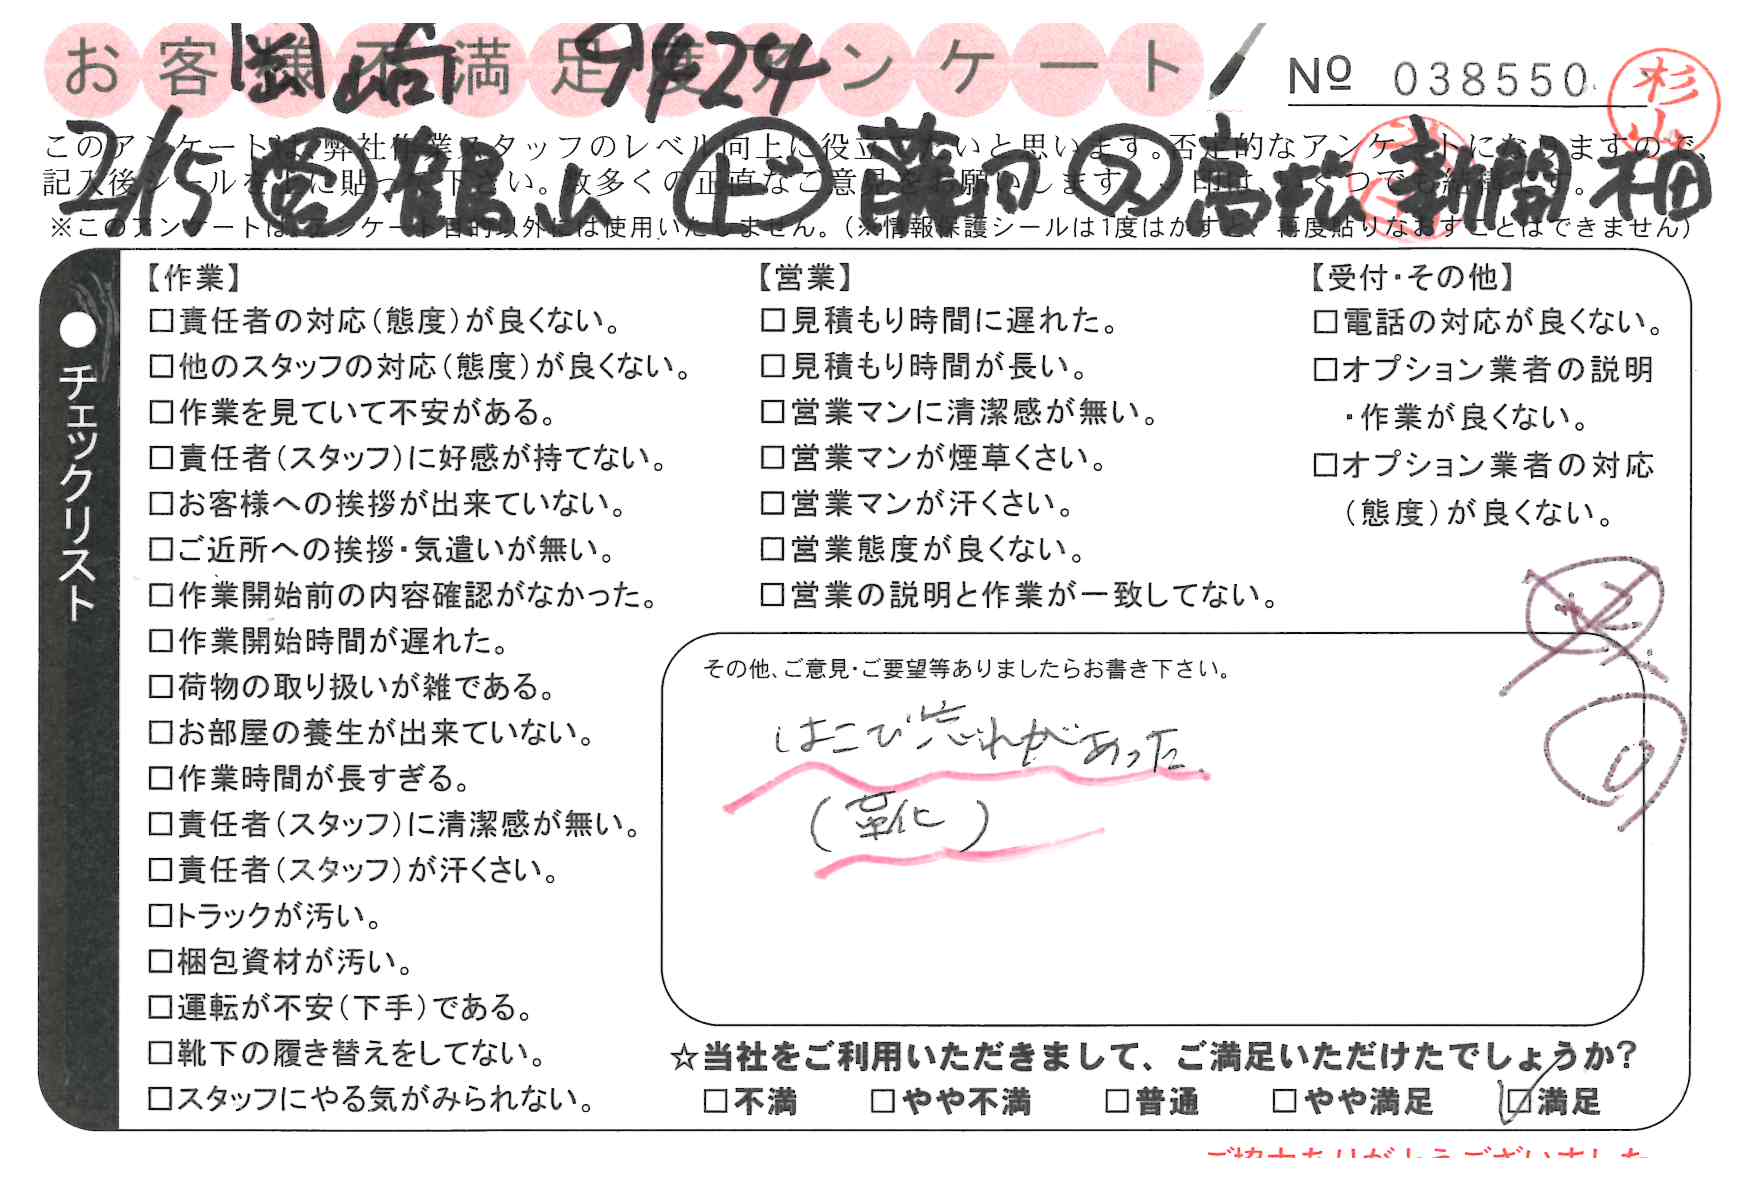 お客様不満足度アンケート
№ 038550
杉山
岡崎 9424
このアンケートは、弊社作業スタッフのレベル向上に役立てたいと思います。否定的なアンケートになりますので、
記入後シールを上に貼って下さい。数多くの正直なご意見をお願いします。
2/15 鶴山 ド 高松 新開 柵
※このアンケートは、アンケート目的以外には使用いたしません。(※情報保護シールは1度はがすと、再度貼りなおすことはできません)
●チェックリスト
【作業】
□責任者の対応(態度)が良くない。
□他のスタッフの対応(態度)が良くない。
□作業を見ていて不安がある。
□責任者(スタッフ)に好感が持てない。
□お客様への挨拶が出来ていない。
□ご近所への挨拶・気遣いが無い。
□作業開始前の内容確認がなかった。
□作業開始時間が遅れた。
□荷物の取り扱いが雑である。
□お部屋の養生が出来ていない。
□作業時間が長すぎる。
□責任者(スタッフ)に清潔感が無い。
□責任者(スタッフ)が汗くさい。
□トラックが汚い。
□梱包資材が汚い。
□運転が不安(下手)である。
□靴下の履き替えをしてない。
□スタッフにやる気がみられない。
【営業】
□見積もり時間に遅れた。
□見積もり時間が長い。
□営業マンに清潔感が無い。
□営業マンが煙草くさい。
□営業マンが汗くさい。
□営業態度が良くない。
□営業の説明と作業が一致してない。
【受付・その他】
□電話の対応が良くない。
□オプション業者の説明
・作業が良くない。
□オプション業者の対応
(態度)が良くない。
その他、ご意見・ご要望等ありましたらお書き下さい。
はこび忘れがあった.
(靴)
0
☆当社をご利用いただきまして、ご満足いただけたでしょうか?
□不満 □やや不満 □普通 □やや満足 ☑満足
ご協力ありがとうございました